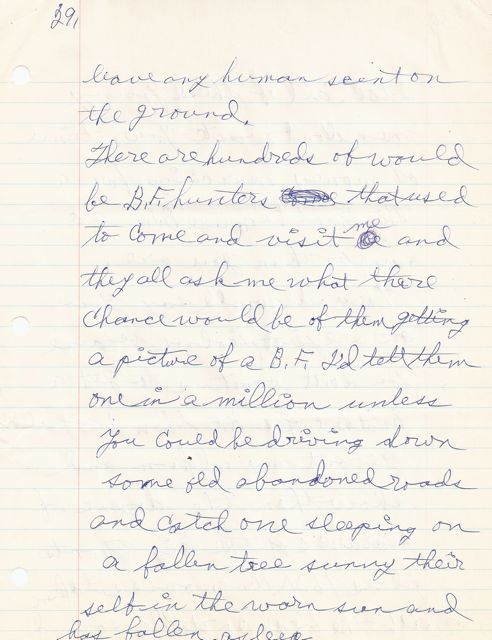 29,
leave any human scent on
the ground.
There are hundreds of would
be B.F. hunters that used
to come and visit me and
they all ask me what there
chance would be of them getting
a picture of a B.F. I'd tell them
one in a million unless
you could be driving down
some old abandoned roads
and catch one sleeping on
a fallen tree sunny their
self in the worn sun and
has fallen asleep